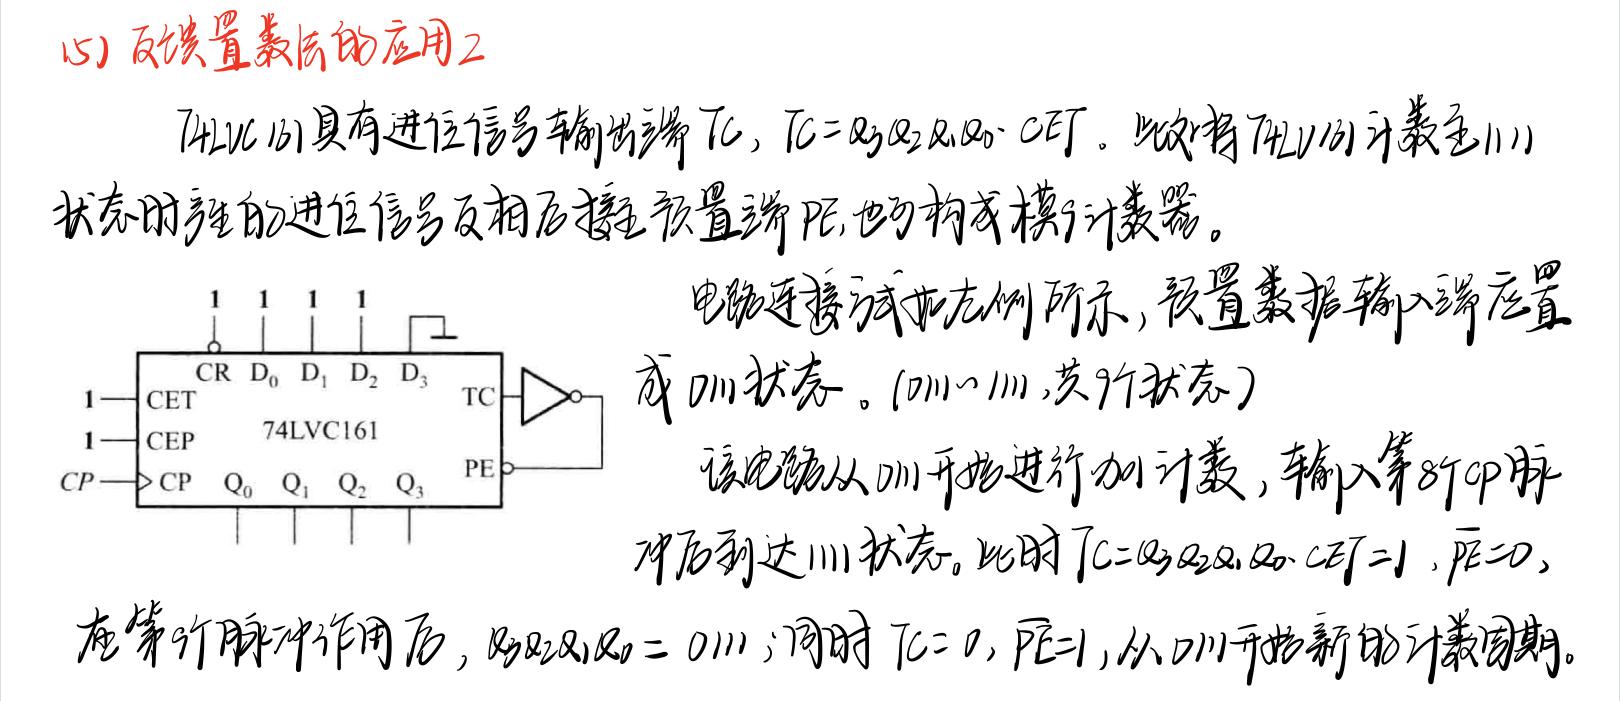 (5) 反馈置数法的应用2
74LVC161具有进位信号输出端TC, TC=Q3Q2Q1Q0·CET。此外将74LV161计数至1111
状态时产生的进位信号反相后接至预置端PE,也可构成模9计数器。
电路连接方式如左侧所示,预置数据输入端应置
成0111状态。(0111~1111,共9个状态)
该电路从0111开始进行加1计数,输入第8个CP脉
冲后到达1111状态。此时TC=Q3Q2Q1Q0·CET=1,P̅E̅=0,
在第9个脉冲作用后,Q3Q2Q1Q0=0111;同时TC=0,P̅E̅=1,从0111开始新的计数周期。
1 1 1 1
CR D0 D1 D2 D3
1 CET TC
74LVC161
1 CEP
PE
CP CP Q0 Q1 Q2 Q3